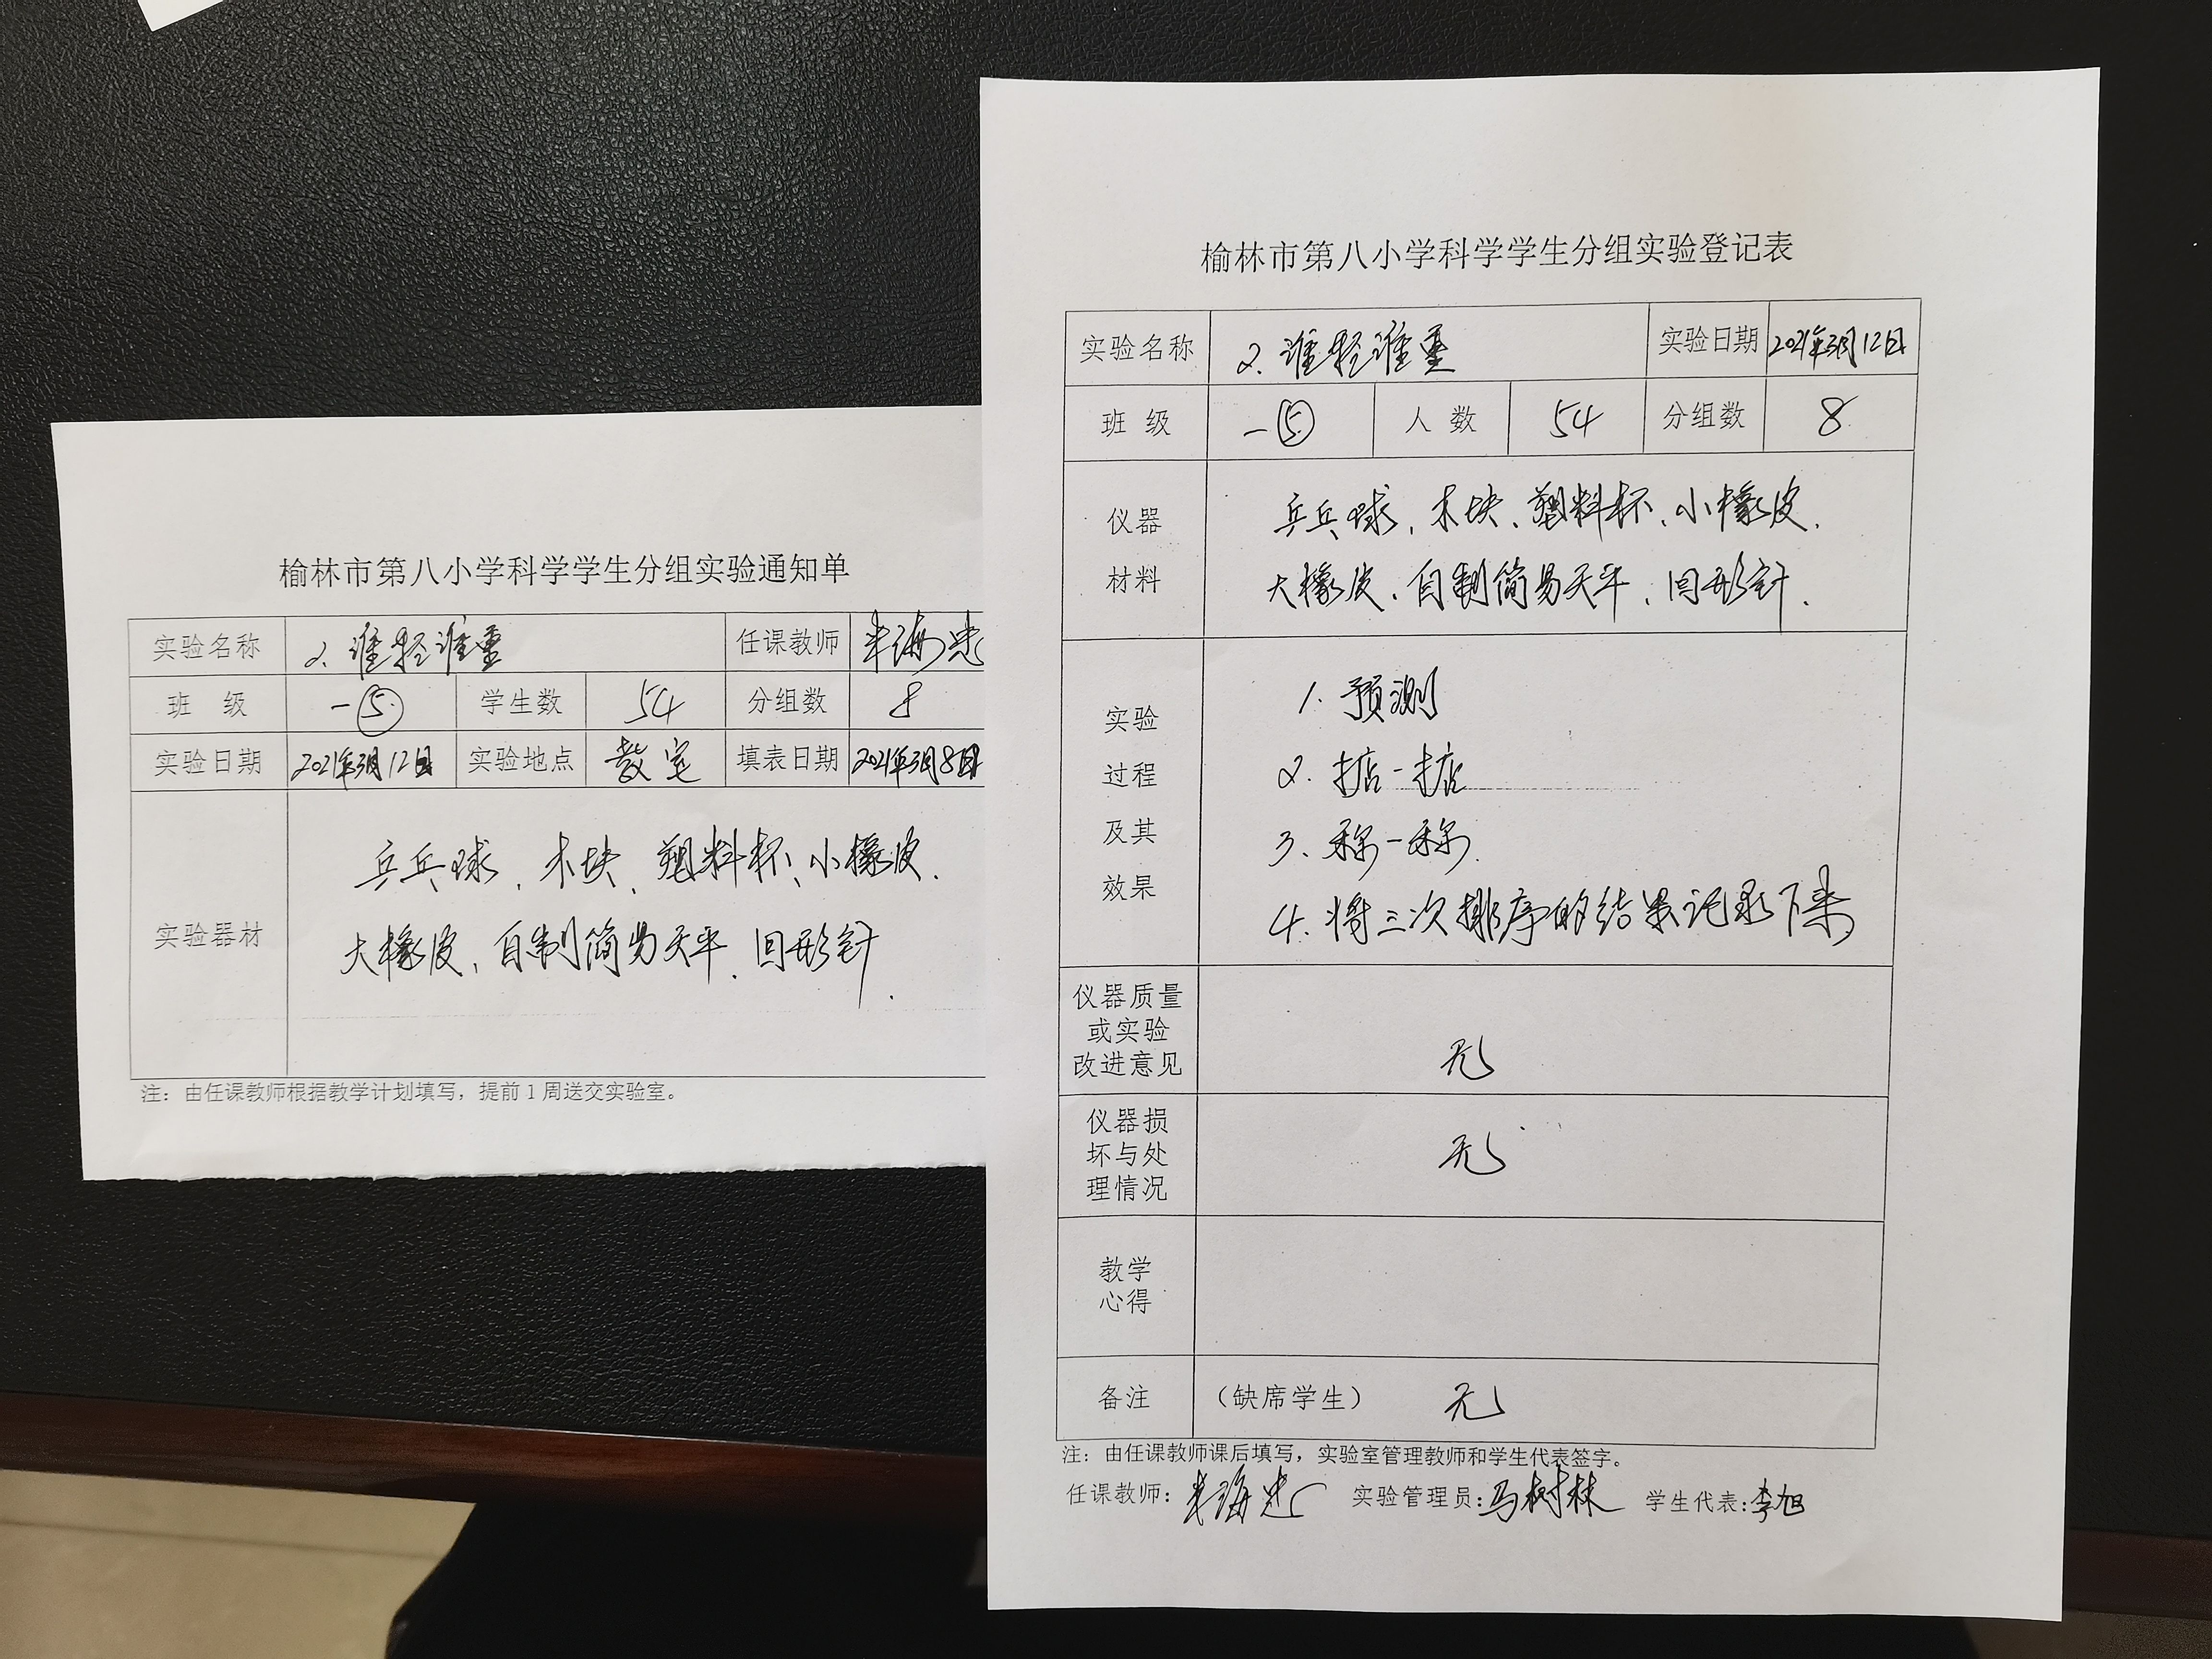 榆林市第八小学科学学生分组实验通知单
实验名称 2. 谁轻谁重 任课教师
班 级 一⑤ 学生数 54 分组数 8
实验日期 2021年3月12日 实验地点 教室 填表日期 2021年3月8日
实验器材
乒乓球、木块、塑料杯、小橡皮、
大橡皮、自制简易天平、回形针.
注：由任课教师根据教学计划填写，提前1周送交实验室。
榆林市第八小学科学学生分组实验登记表
实验名称 2. 谁轻谁重 实验日期 2021年3月12日
班 级 一⑤ 人 数 54 分组数 8
仪器 乒乓球、木块、塑料杯、小橡皮、
材料 大橡皮、自制简易天平、回形针.
实验
过程
及其
效果
1. 预测
2. 掂一掂
3、称一称
4. 将三次排序的结果记录下来
仪器质量
或实验
改进意见
无
仪器损
坏与处
理情况
无
教学
心得
备注 （缺席学生） 无
注：由任课教师课后填写，实验室管理教师和学生代表签字。
任课教师： 实验管理员：马树林 学生代表：李旭